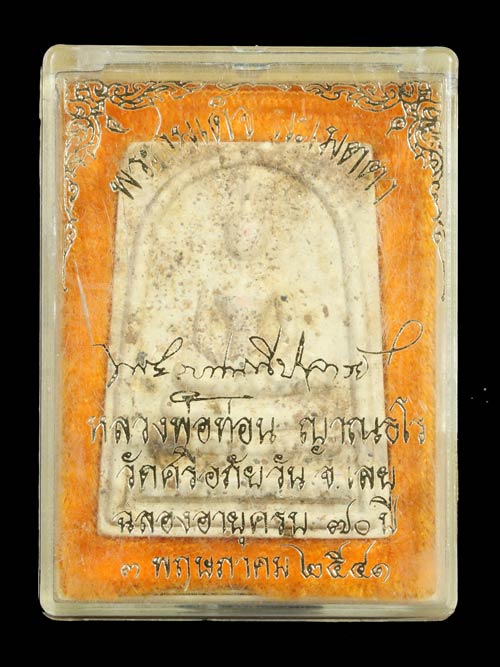 พระสมเด็จ นะเมตตา
หลวงพ่อท่อน ญาณธโร
วัดศรีอภัยวัน จ.เลย
ฉลองอายุครบ ๗๐ ปี
๓ พฤษภาคม ๒๕๔๑